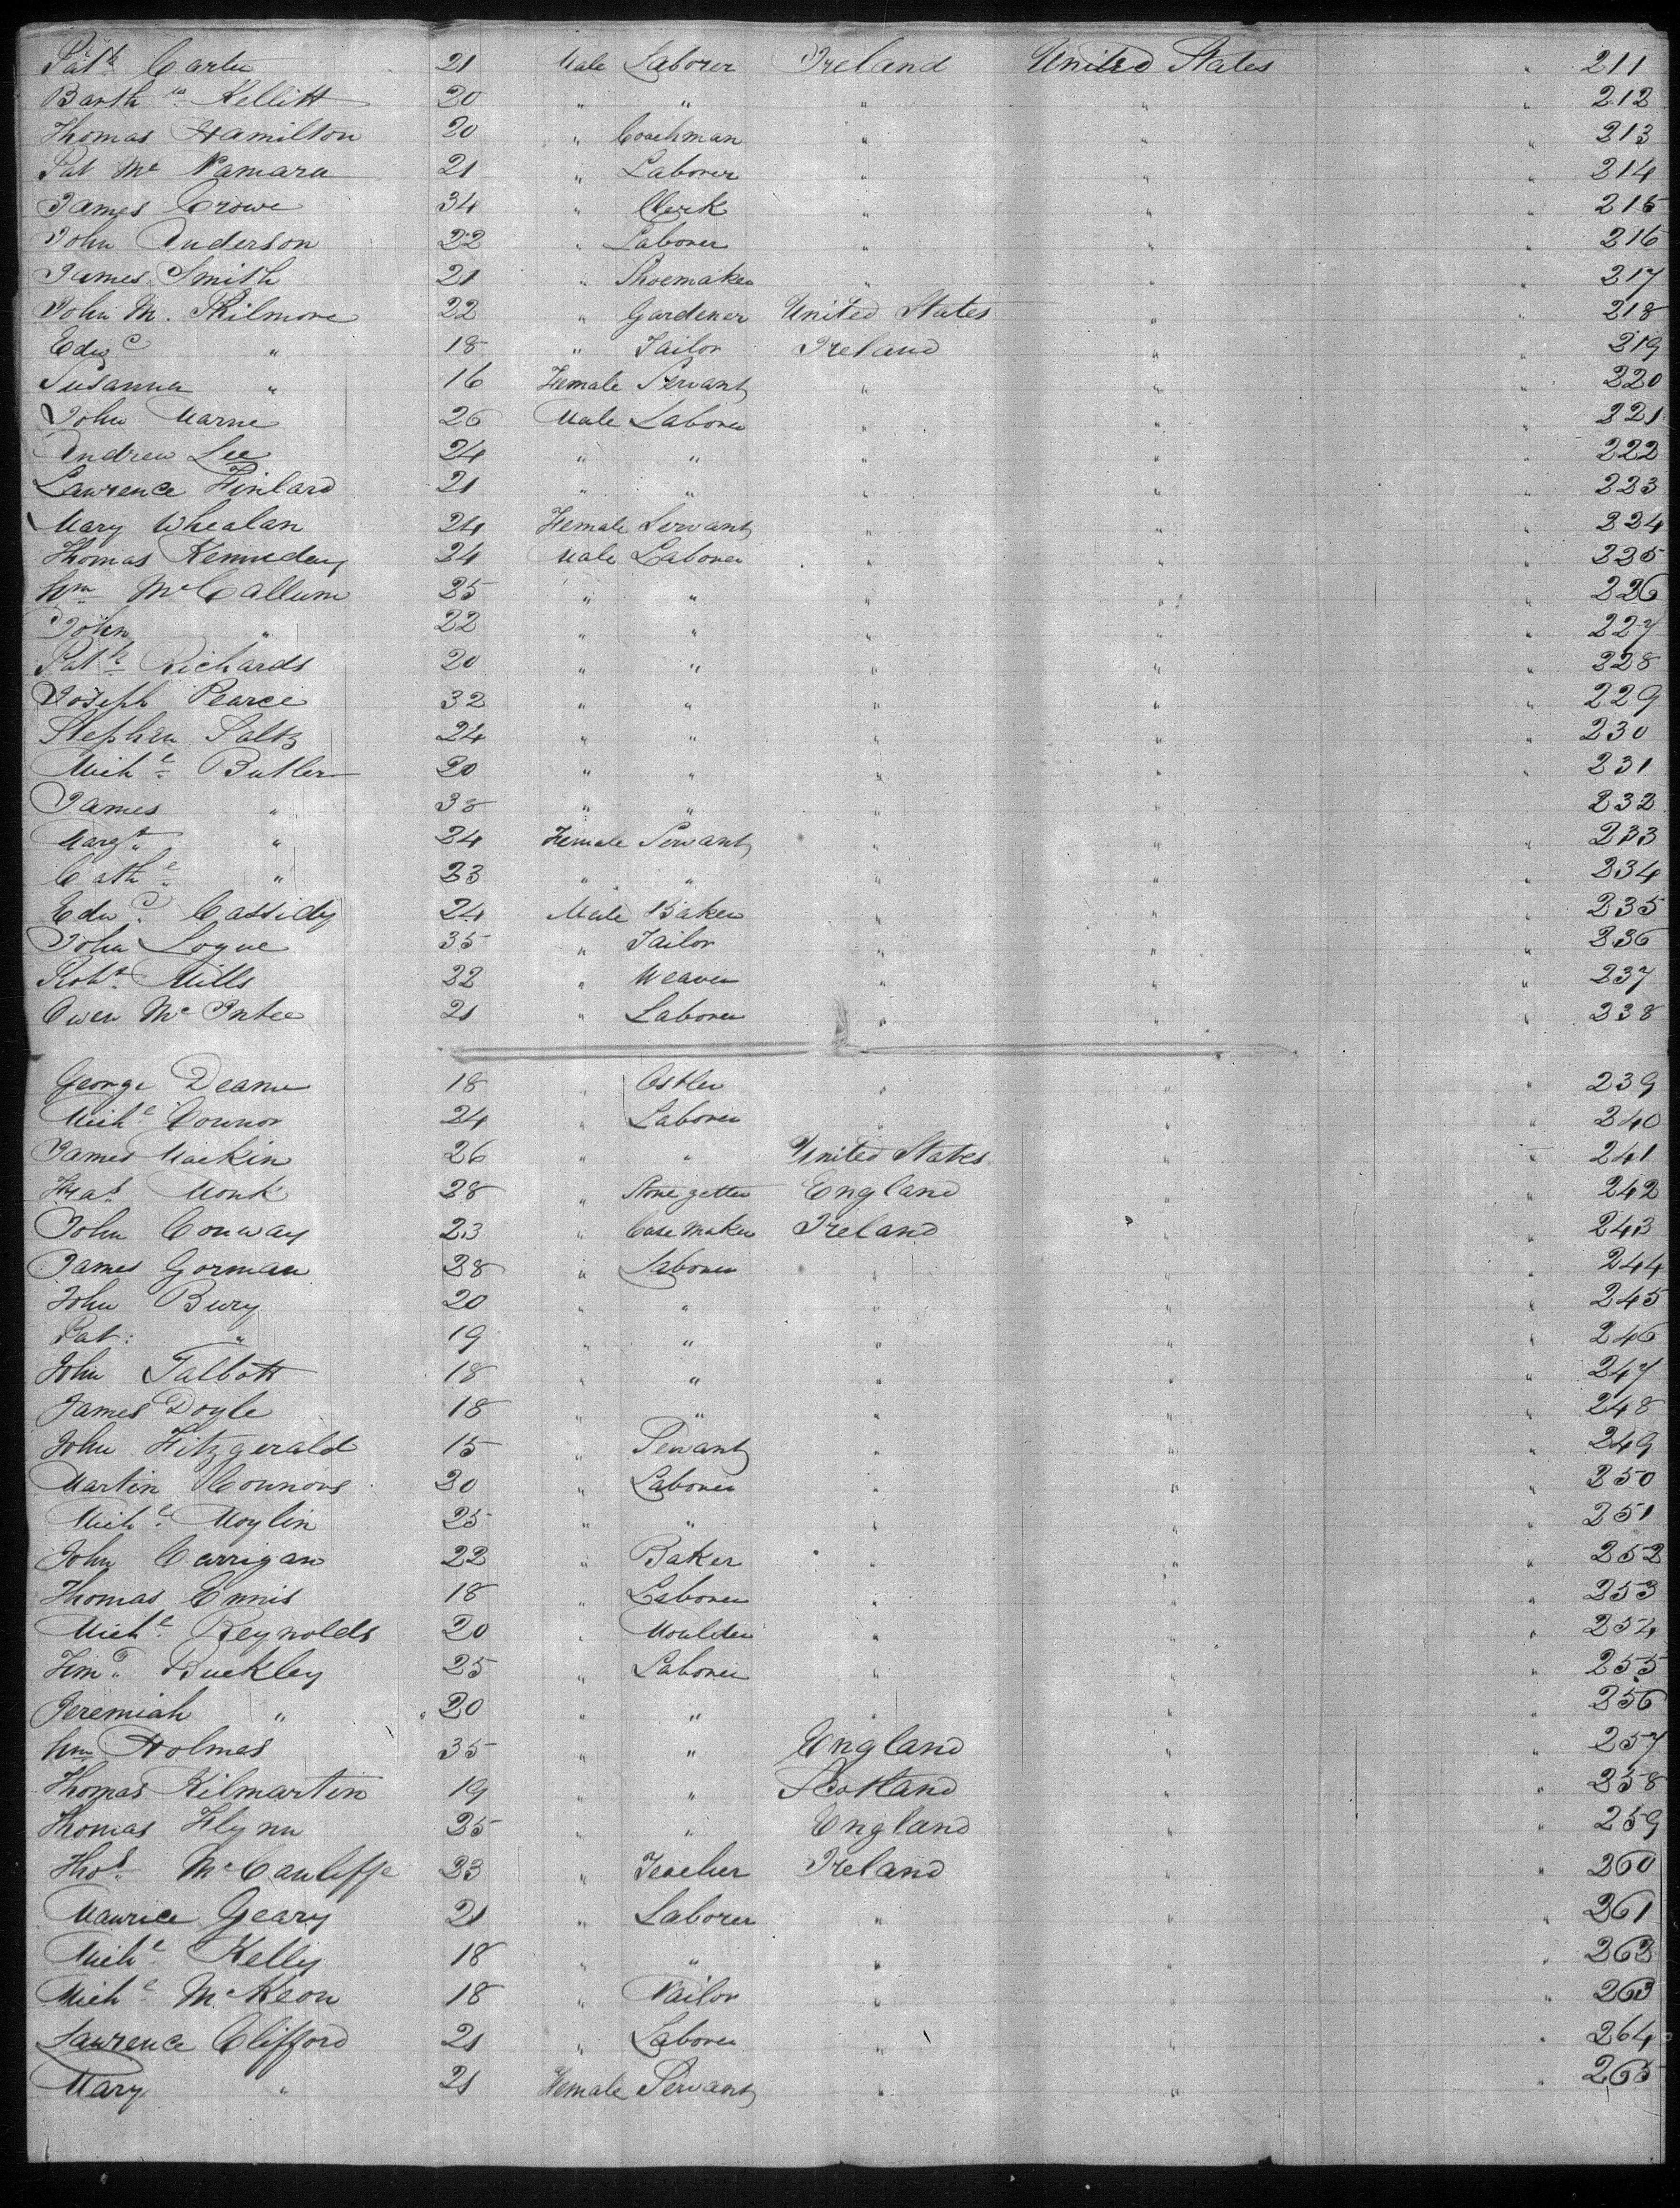 Patk Carter 21 Male Laborer Ireland United States " 211
Barthw Kellitt 20 " " " " " 212
Thomas Hamilton 20 " Coachman " " " 213
Pat Mc Namara 21 " Laborer " " " 214
James Crowe 34 " Clerk " " " 215
John Anderson 22 " Laborer " " " 216
James Smith 21 " Shoemaker " " " 217
John M. Kilmore 22 " Gardener United States " " 218
Edwd " 18 " Tailor Ireland " " 219
Susanna " 16 Female Servant " " " 220
John Marne 26 Male Laborer " " " 221
Andrew Lee 24 " " " " " 222
Lawrence Finlard 21 " " " " " 223
Mary Whealan 24 Female Servant " " " 224
Thomas Kennedey 24 Male Laborer " " " 225
Wm McCallum 25 " " " " " 226
John " 22 " " " " " 227
Patk Richards 20 " " " " " 228
Joseph Pearce 32 " " " " " 229
Stephen Saltz 24 " " " " " 230
Michl Butler 20 " " " " " 231
James " 38 " " " " " 232
Margt " 24 Female Servant " " " 233
Cathe " 23 " " " " " 234
Edwd Cassidy 24 Male Baker " " " 235
John Logue 35 " Tailor " " " 236
Robt Mills 22 " Weaver " " " 237
Owen McIntee 21 " Laborer " " " 238
George Deane 18 " Ostler " " " 239
Michl Connor 24 " Laborer " " " 240
James Mackin 26 " " United States " " 241
Fras Monk 28 " Stone getter England " " 242
John Conway 23 " Case Maker Ireland " " 243
James Gorman 28 " Laborer " " " 244
John Bury 20 " " " " " 245
Pat: " 19 " " " " " 246
John Talbott 18 " " " " " 247
James Doyle 18 " " " " " 248
John Fitzgerald 15 " Servant " " " 249
Martin Connors 20 " Laborer " " " 250
Michl Moylin 25 " " " " " 251
John Carrigan 22 " Baker " " " 252
Thomas Ennis 18 " Laborer " " " 253
Michl Reynolds 20 " Moulder " " " 254
Timo Buckley 25 " Laborer " " " 255
Jeremiah " 20 " " " " " 256
Wm Holmes 35 " " England " " 257
Thomas Kilmartin 19 " " Scotland " " 258
Thomas Flynn 25 " " England " " 259
Thos McCauliffe 23 " Teacher Ireland " " 260
Maurice Geary 21 " Laborer " " " 261
Michl Kelly 18 " " " " " 262
Michl McKeon 18 " Nailor " " " 263
Lawrence Clifford 21 " Laborer " " " 264
Mary " 21 Female Servant " " " 265